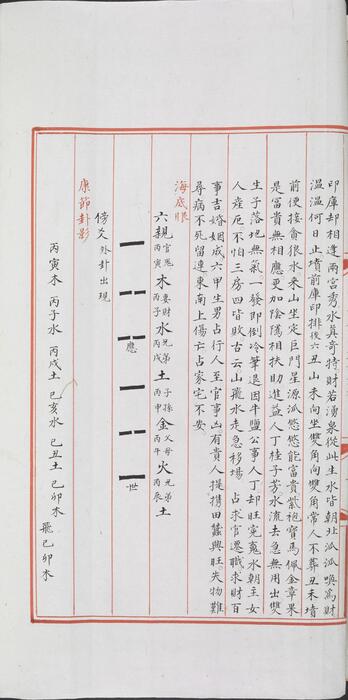 印庫却相逢兩宮秀水真奇特財若湧泉從此生水皆朝北瓜瓜喚為財
溫溫何日止墳前庫印排後六丑山未向坐雙角向雙角常人不葬丑未墳
前便接會狠水來山坐定巨門星源瓜悠悠能富貴紫袍寶馬佩金章果
是富貴無相應更加陰陽相扶助進益人丁桂子芳水流去急無用出雙
生子落地無氣一發即倒冷筆退因牛鹽公事人丁却旺寃鬼水朝主女
人産厄不怕三房四皆敗古云山飛水走急移場 占求官遷職求財百
事吉婚姻成六甲生男占行人至官事凶有貴人提携田蠶興旺失物難
尋病不死留連東南上傷亡占家宅不安
海底眼
六親 官鬼丙寅木 妻財丙子水 兄弟丙戌土 子孫丙申金 父母丙午火 兄弟丙辰土
應
世
傍爻 外卦出現
康節卦影
丙寅木 丙子水 丙戌土 己亥水 己丑土 己卯木 飛己卯木